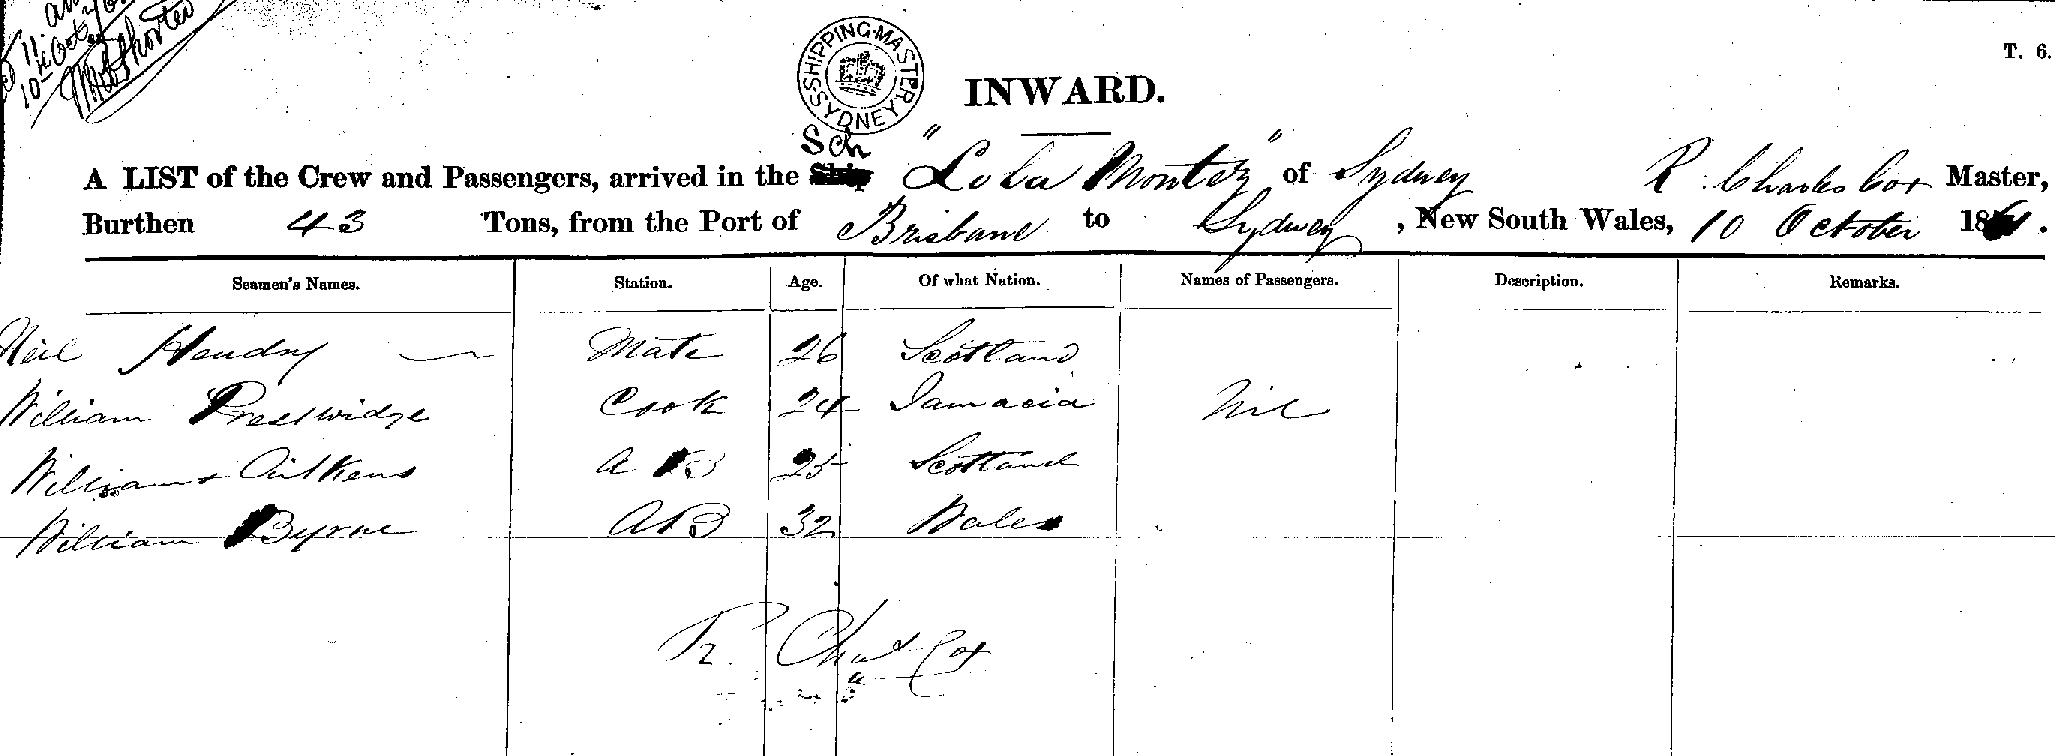 10 Oct
SHIPPING MASTER SYDNEY
T. 6.
INWARD.
Sch
A LIST of the Crew and Passengers, arrived in the Ship "Lola Montez" of Sydney R. Charles Cox Master,
Burthen 43 Tons, from the Port of Brisbane to Sydney, New South Wales, 10 October 1861.
Seamen's Names. Station. Age. Of what Nation. Names of Passengers. Description. Remarks.
Neil Hendry Mate 26 Scotland
William Prestwidge Cook 24 Jamacia Nil
William Aitkens A B 25 Scotland
William Byrne AB 32 Wales
R. Chas Cox